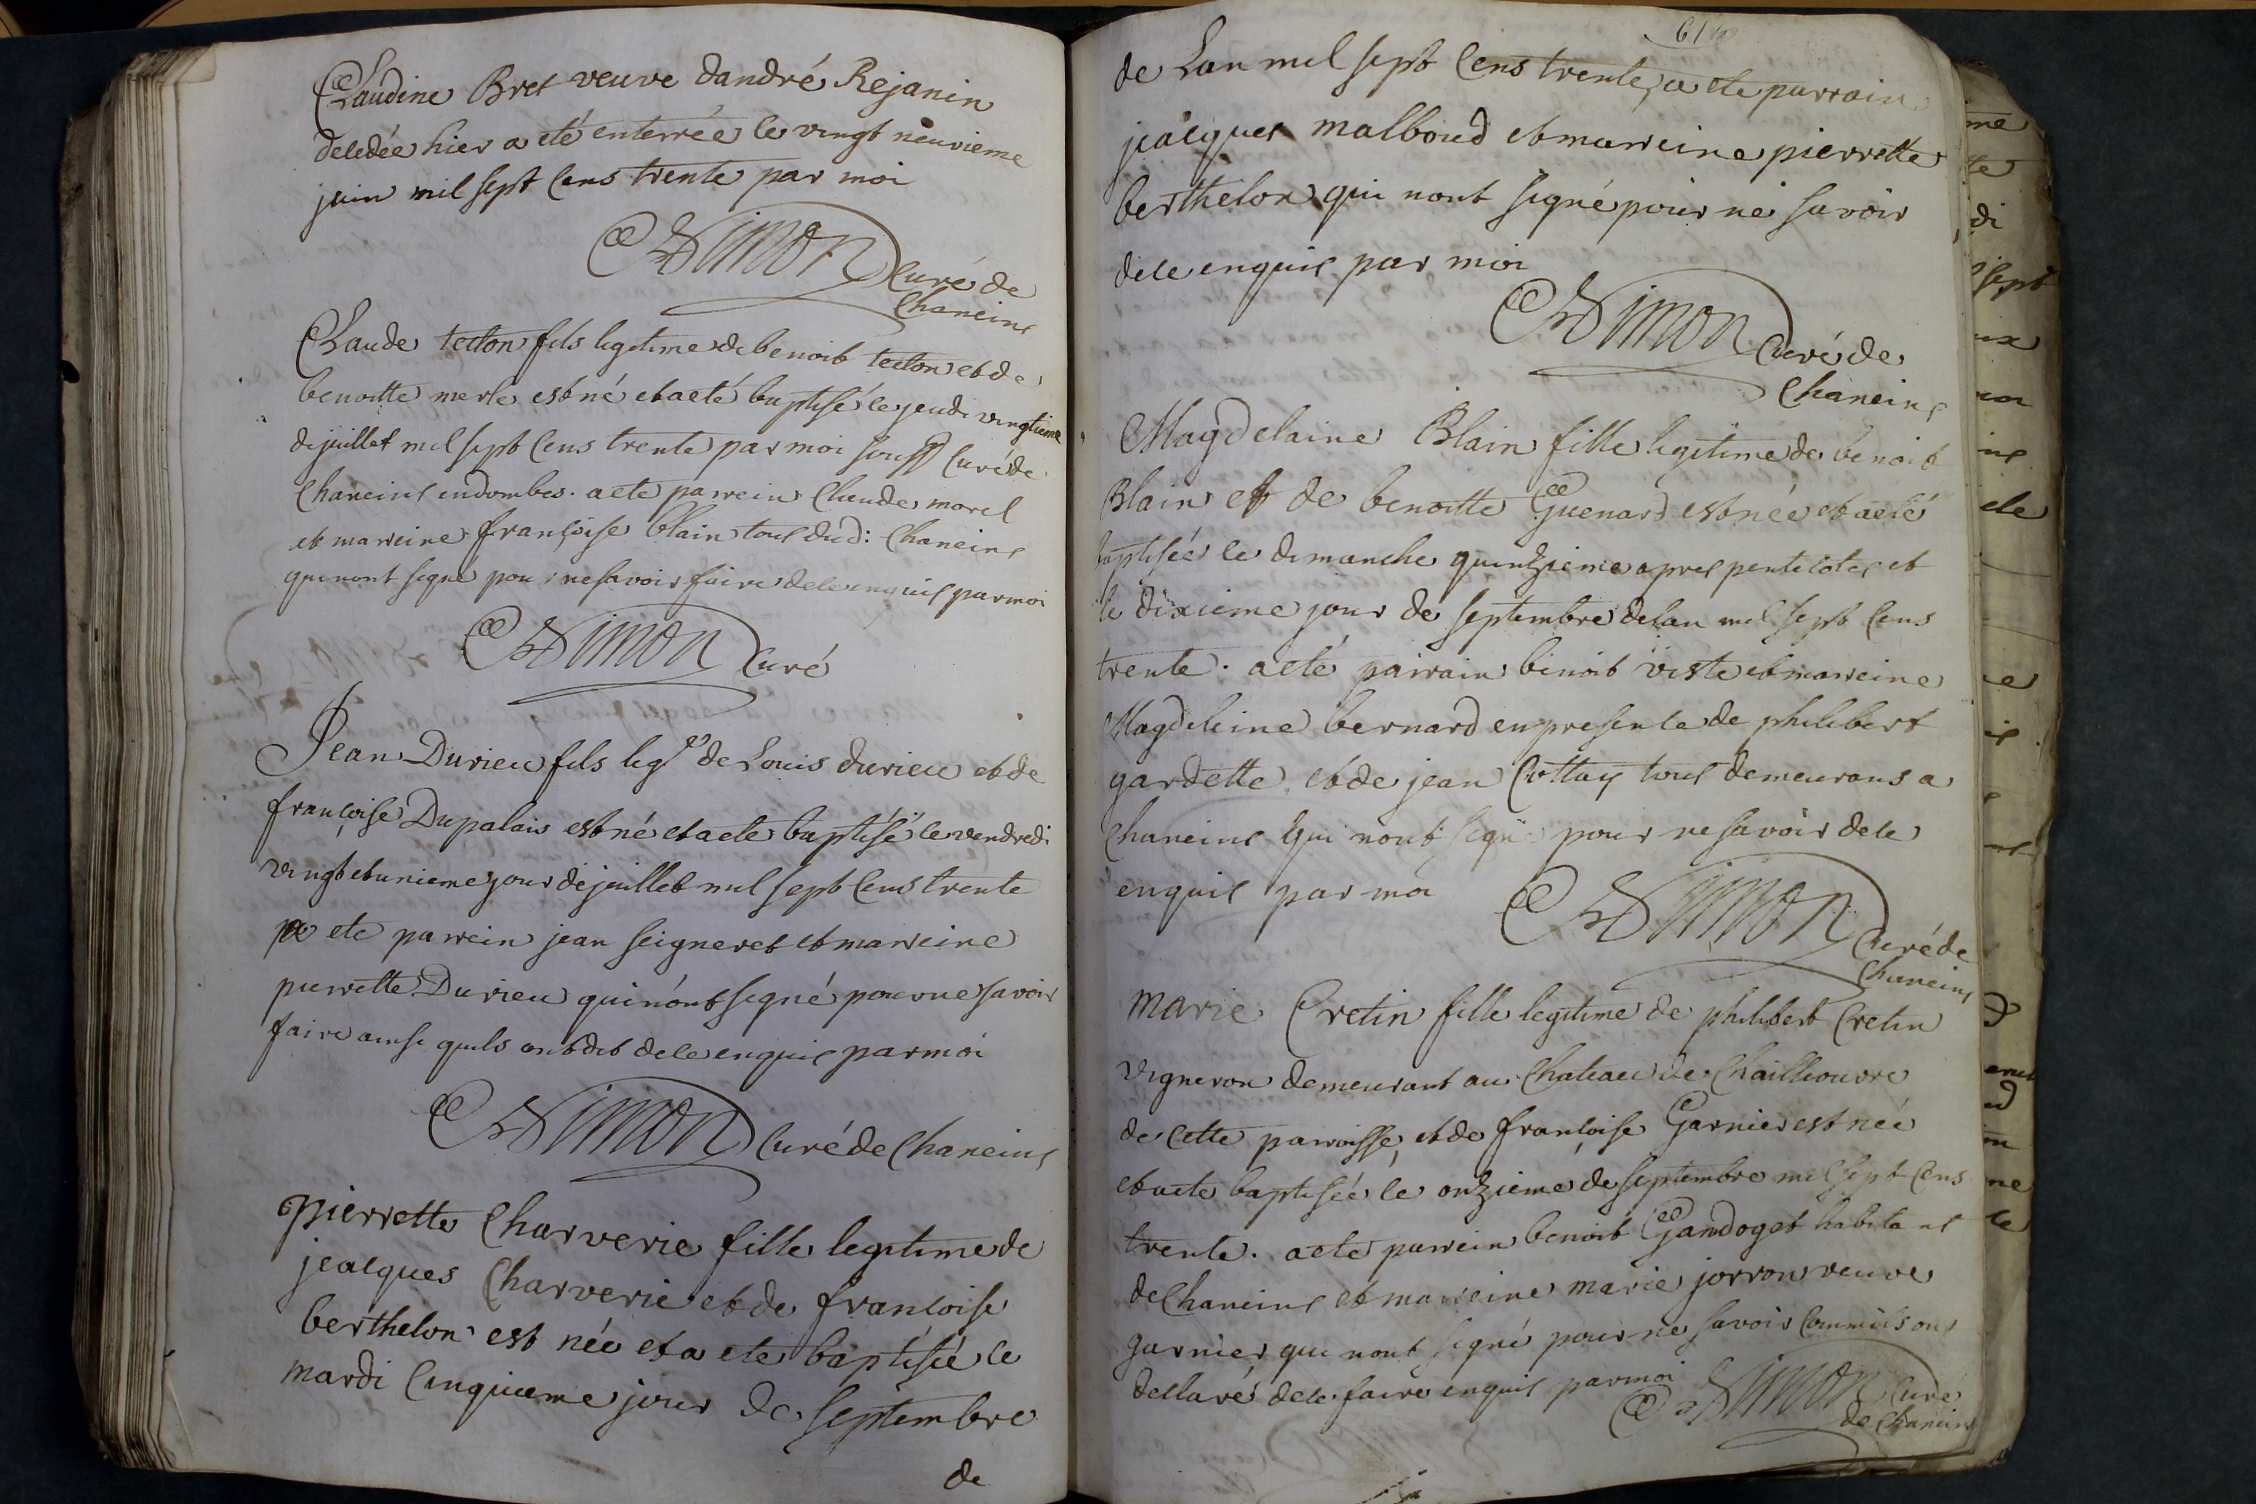 Claudine Bret veuve dandré Rejanin
decedée hier a eté enterrée le vingt neuvieme
juin mil sept cens trente par moi
Simon curé de
Chaneins
Claude teilon fils legitime de benoit teilon et de
benoitte merle est né et a eté baptisé le jeudi vingtieme
de juillet mil sept cens trente par moi souss curé de
Chaneins en dombes. a ete parrein Claude morel
et marreine françoise blain tous dud: Chaneins
qui nont signé pour ne savoir faire de ce enquis par moi
Simon curé
Jean Durieu fils leg de Louis durieu et de
françoise Dupalais est né et a ete baptisé le vendredi
vingt et unieme jour de juillet mil sept cens trente
a ete parrein jean seigneret et marreine
pierrette Durieu qui nont signé pour ne savoir
faire ainsi quils ont dit de ce enquis par moi
Simon curé de Chaneins
pierrette Charverie fille legitime de
jealques Charverie et de francoise
berthelon est née et a ete baptisée le
mardi cinquieme jour de septembre
de
61
de Lan mil sept cens trente, a ete parrain
jealques malboud et marreine pierrette
berthelon qui nont signé pour ne savoir
de ce enquis par moi
Simon curé de
Chaneins
Magdelaine Blain fille legitime de benoit
Blain et de benoitte Guenard est née et a eté
baptisée le dimanche quinzieme apres pentecotes et
le dixieme jour de septembre de lan mil sept cens
trente. a eté parrain benoit viste et marreine
Magdeleine bernard en presence de philibert
gardette et de jean Cottay tous demeurans a
Chaneins qui nont signé pour ne savoir de ce
enquis par moi Simon curé de
Chaneins
marie Cretin fille legitime de philibert Cretin
vigneron demeurant au Chateau de Chaillouvre
de cette parroisse, et de francoise Garnier est née
et a ete baptisée le onzieme de septembre mil sept cens
trente. a ete parrein benoit Gandoget habitant
de Chaneins et marreine marie jorron veuve
garnier qui nont signé pour ne savoir comme ils ont
declaré de ce faire enquis par moi Simon curé
de Chaneins